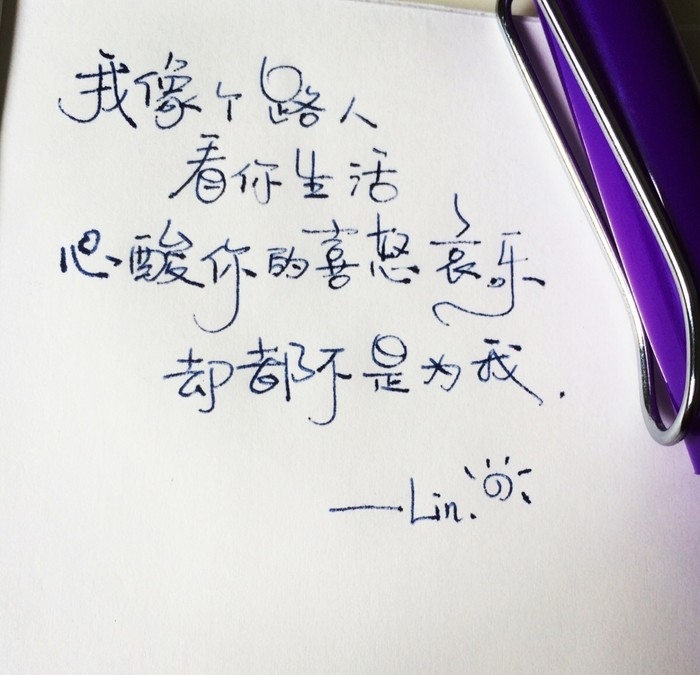 我像个路人
看你生活
心酸你的喜怒哀乐
却都不是为我.
——Lin.